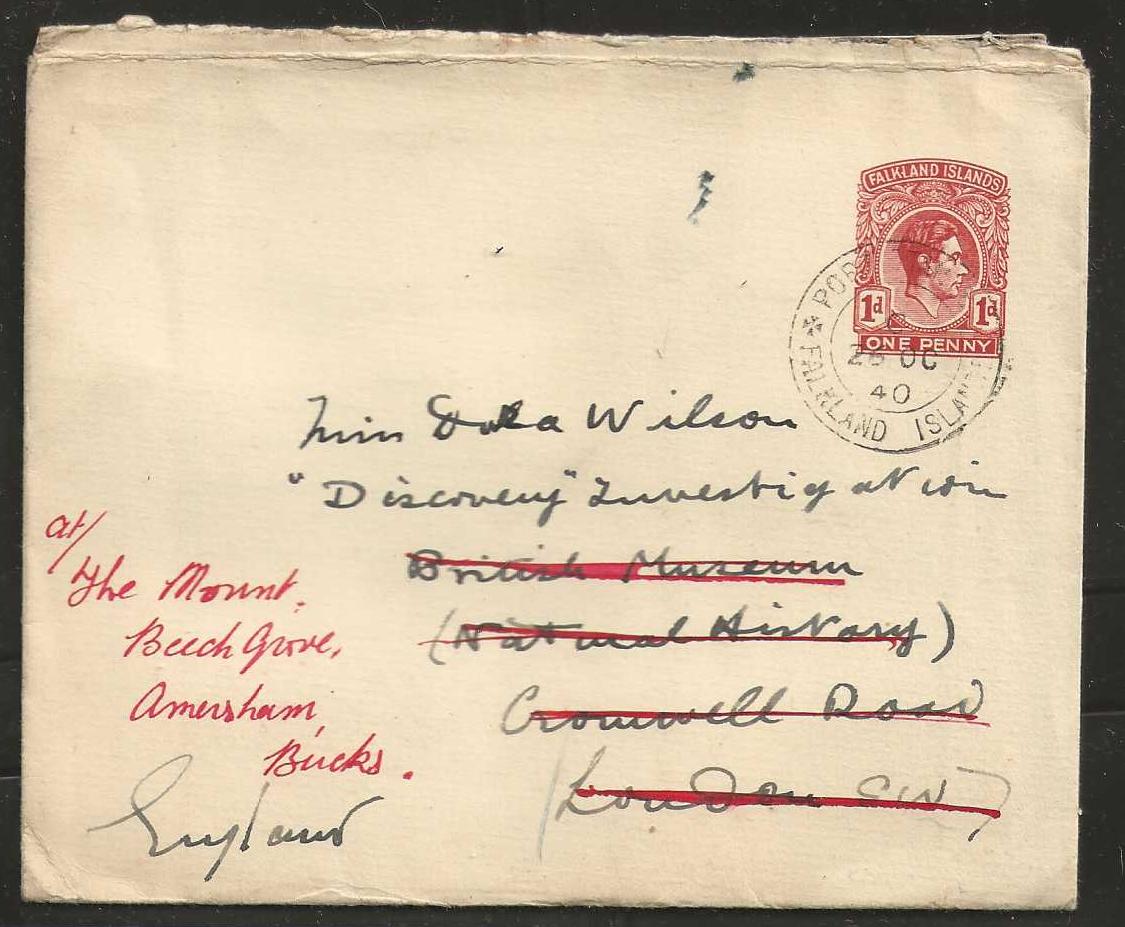 FALKLAND ISLANDS
1d 1d
ONE PENNY
POR
C
OC
40
FALKLAND ISLANDS
Miss Wilson
"Discovery" Investigation
British Museum
(Natural History)
Cromwell Road
London SW7
England
at/
The Mount.
Beech Grove,
Amersham,
Bucks.